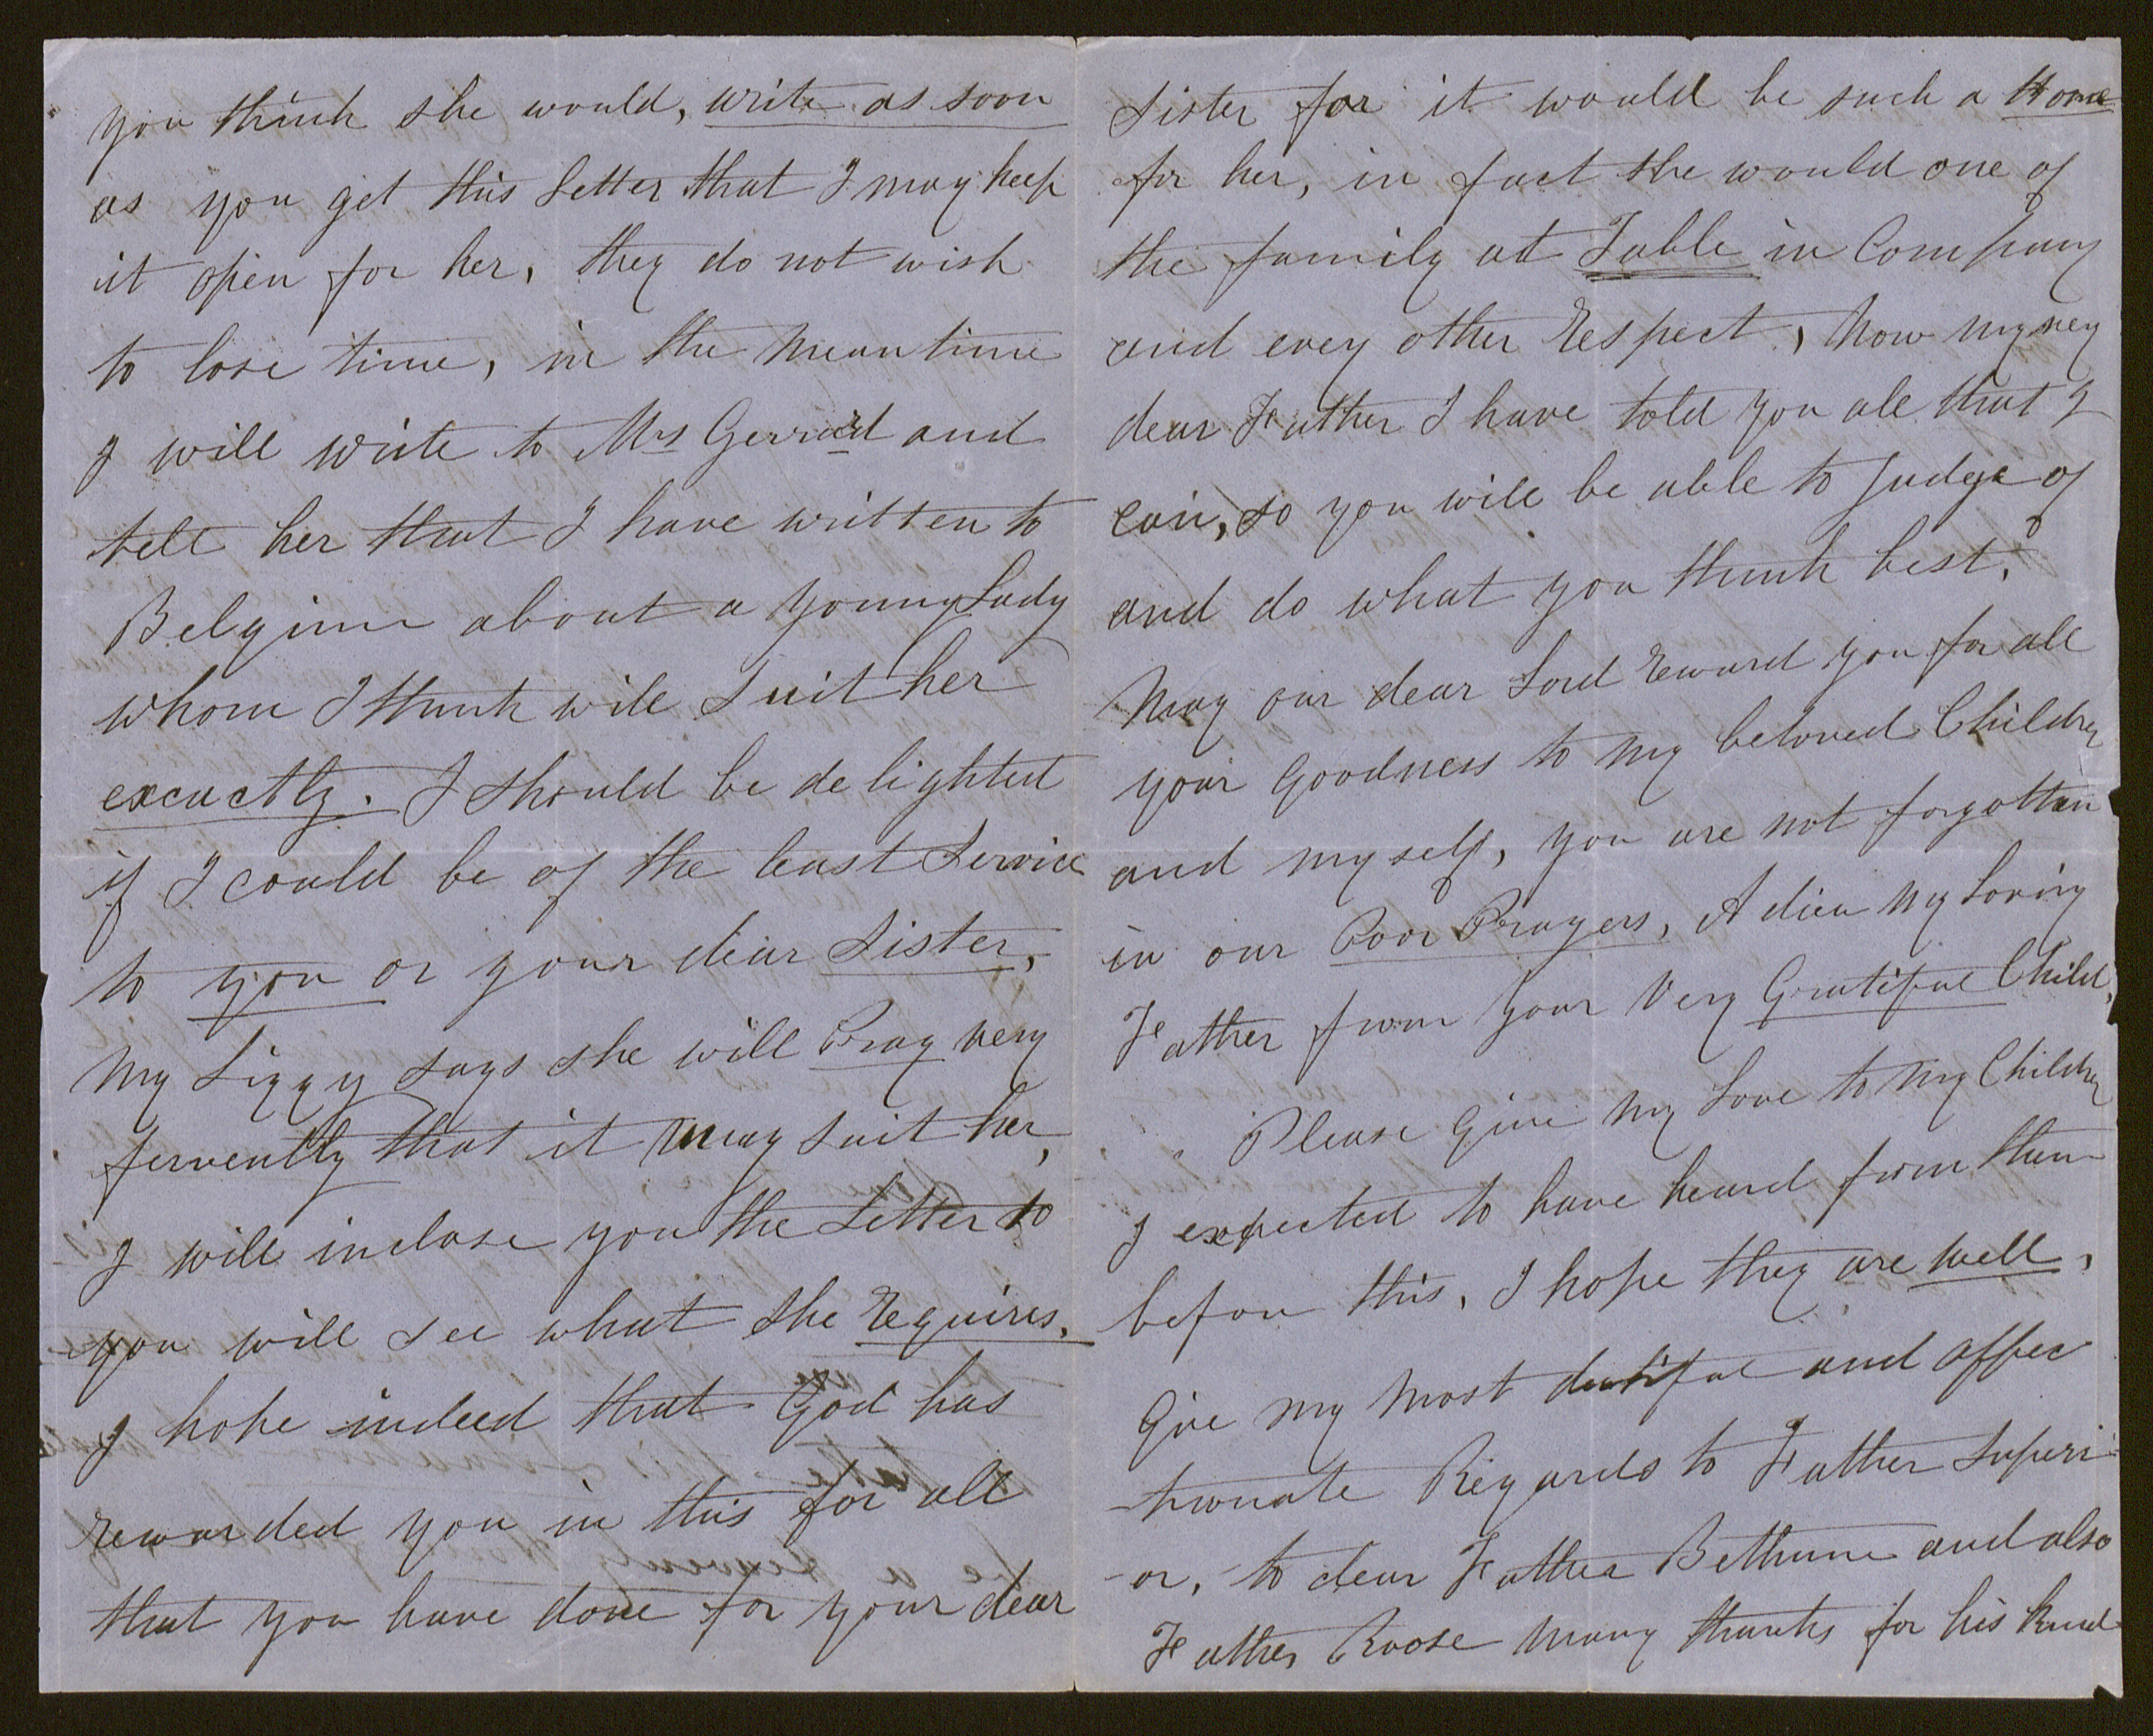 you think she would, write as soon
as you get this Letter that I may keep
it open for her, they do not wish
to lose time, in the mean time
I will write to Mrs Gerrard and
tell her that I have written to
Belgium about a young Lady
whom I think will Suit her
excactly. I should be delighted
if I could be of the least Service
to you or your dear Sister,
my Lizzy says she will Pray very
fervently that it may suit her,
I will inclose you the Letter to
you will see what she requires.
I hope indeed that God has
rewarded you in this for all
that you have done for your dear
Sister for it would be such a Home
for her, in fact she would one of
the family at Table in Company
and every other respect, Now my very
dear Father I have told you all that I
can, so you will be able to judge of
and do what you think best.
May our dear Lord reward you for all
your Goodness to my beloved Children
and myself, you are not forgotten
in our Poor Prayers, Adieu my Loving
Father from your Very Gratiful Child,
Please Give my Love to my Children
I expected to have heard from them
before this, I hope they are well,
Give my most dutiful and affec
-tionate Regards to Father Superi-
-or, to dear Father Bethune and also
Father Roose many thanks for his kind